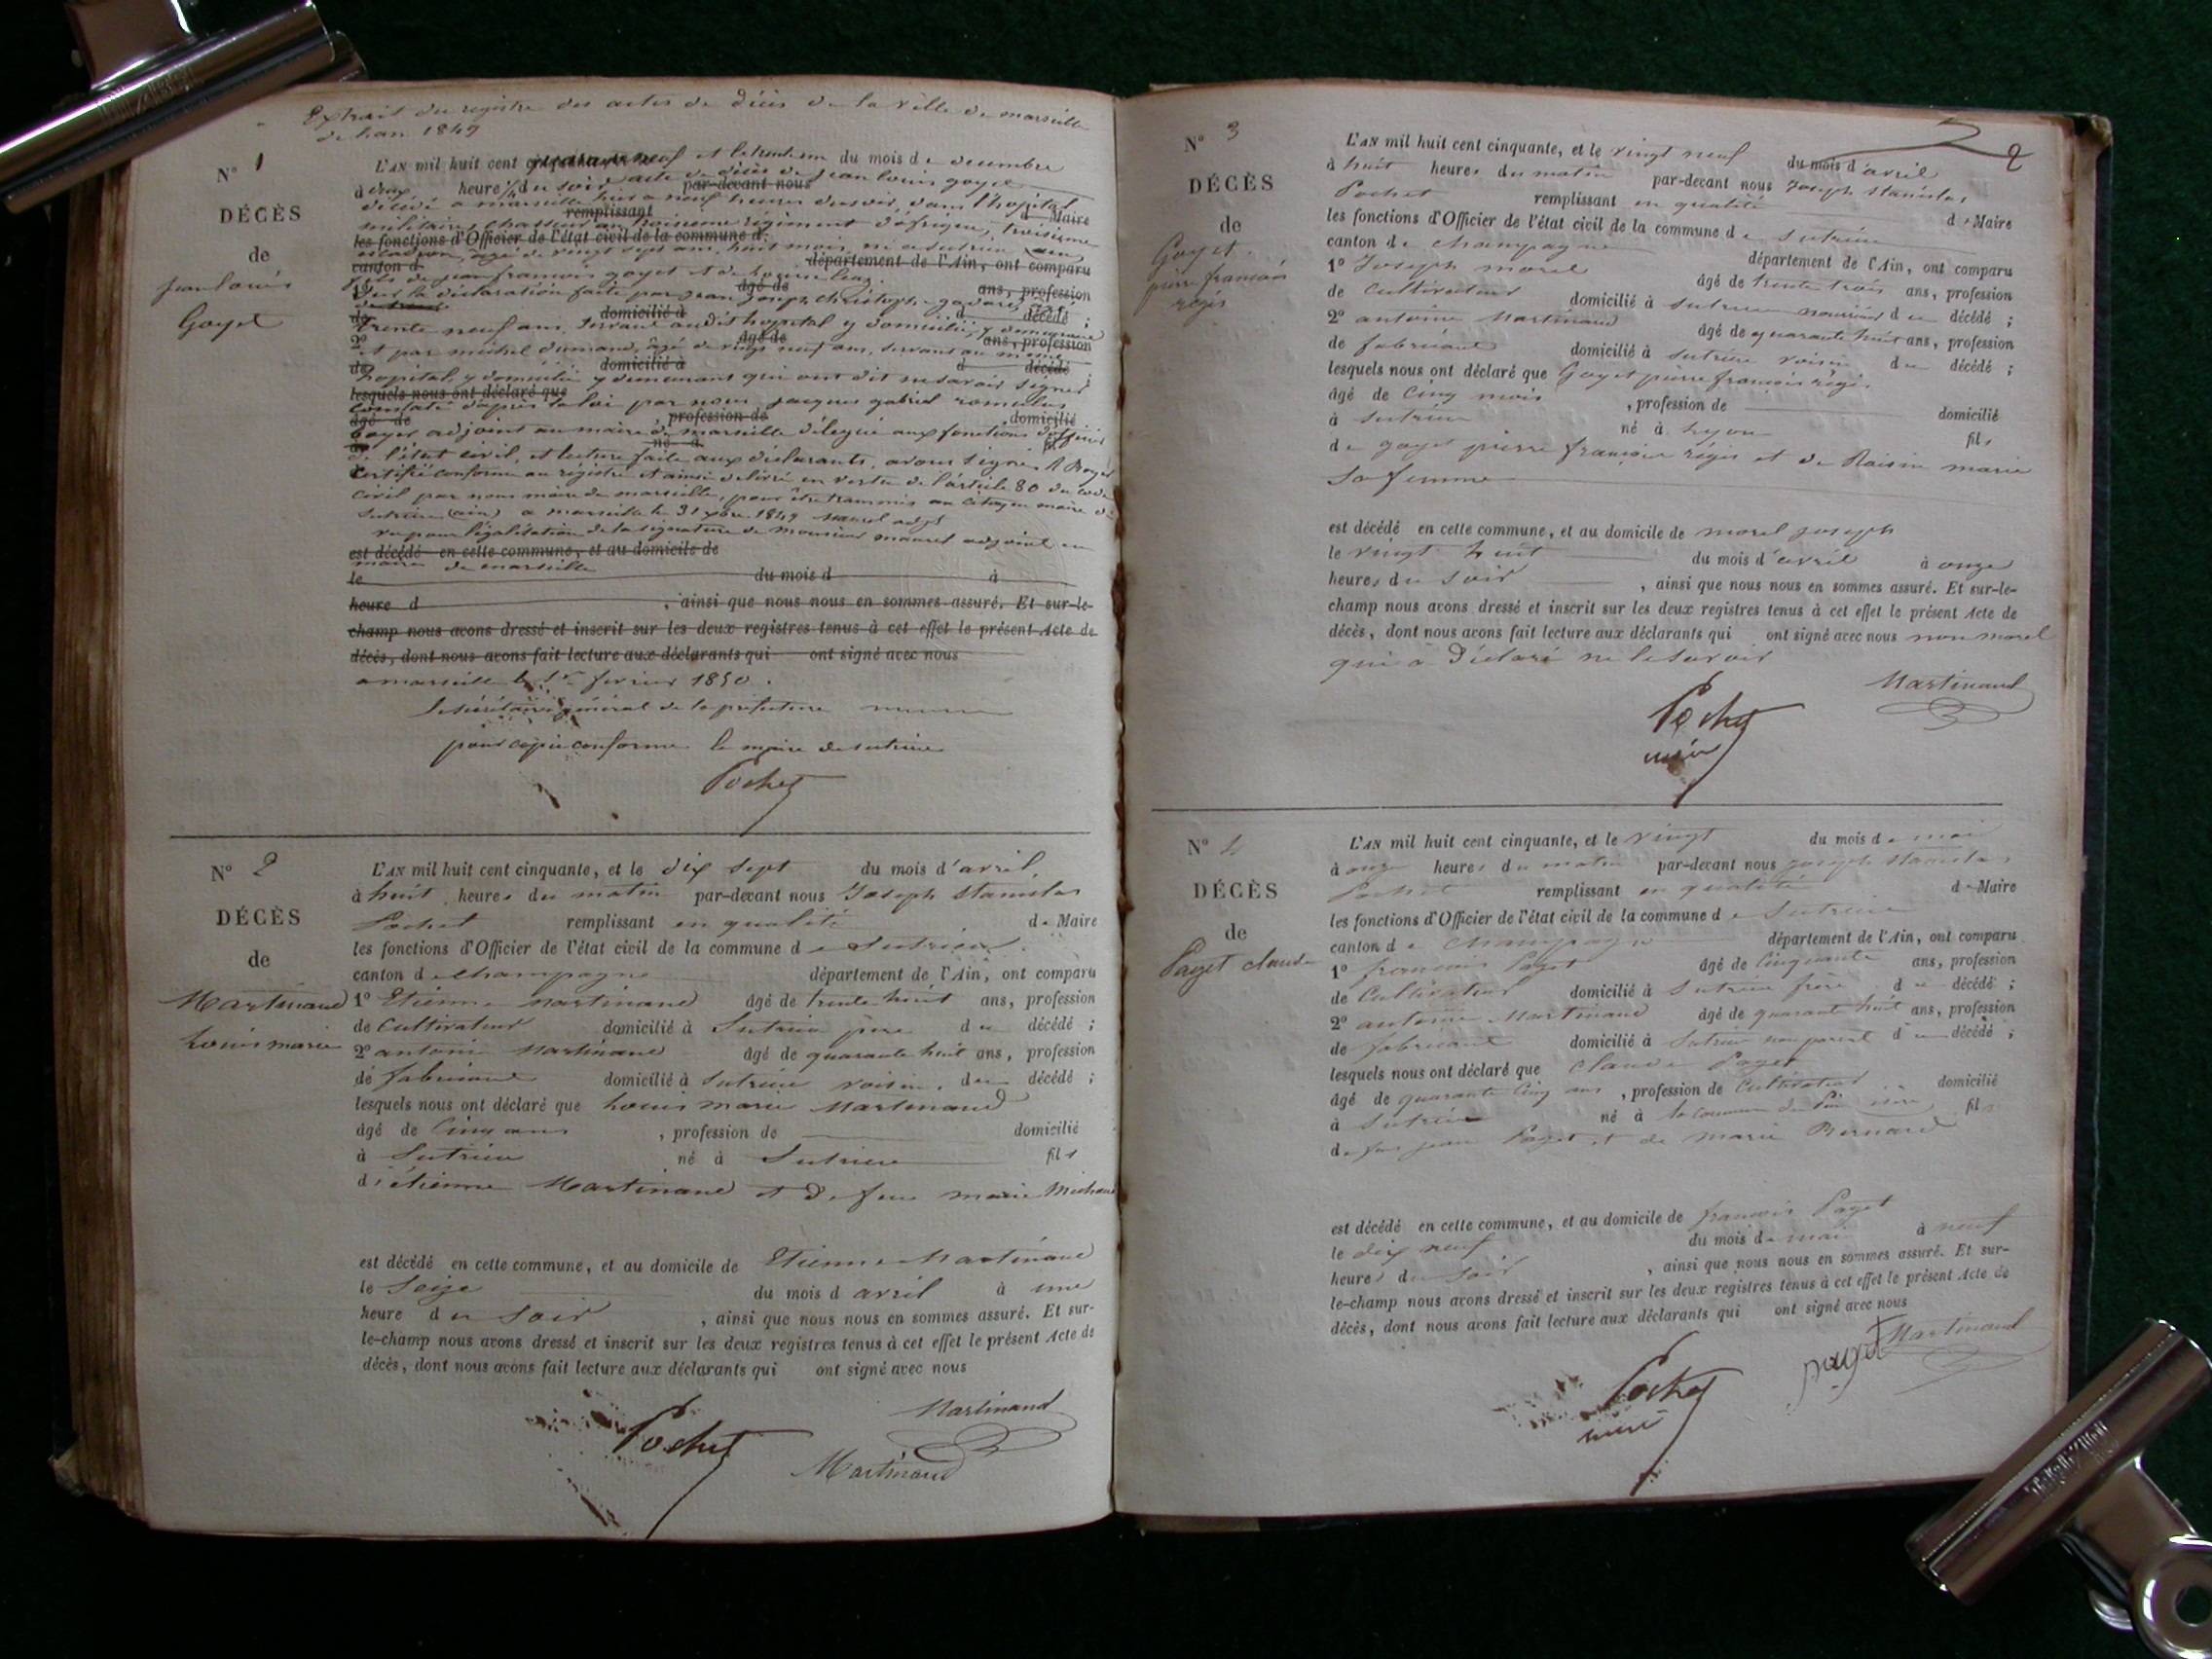 Extrait du registre des actes de décès de la ville de marseille
de l'an 1849
N° 1
DÉCÈS
de
jean louis
Goyet
L'AN mil huit cent quarante neuf et le trente un du mois de decembre
à deux heures du soir acte de décès de jean louis goyet par-devant nous
décédé a marseille hier a neuf heures du soir, dans l'hopital
remplissant d Maire
militaire, chasseur au troisieme régiment d'afrique, troisieme
les fonctions d'Officier de l'état civil de la commune d
escadron, agé de vingt sept ans, huit mois, né a sutrieu
canton d département de l'Ain, ont comparu
fils de jean francois goyet et de
âgé de ans, profession
Sur la déclaration faite par jean joseph christophe
de domicilié à d décédé ;
trente neuf ans, servant audit hopital y domicilié, y demeurant
2° âgé de ans, profession
et par michel dumand, âgé de vingt neuf ans, servant au meme
de domicilié à d décédé
hopital, y domicilié y demeurant qui ont dit ne savoir signer
lesquels nous ont déclaré que
constaté d'après la loi par nous jacques gabriel romulus
âgé de profession de domicilié
boyer adjoint au maire de marseille délégué aux fonctions d'officier
né à fil
de l'état civil, et lecture faite aux déclarants, avons signé
certifié conforme au régistre et ainsi délivré en vertu de l'article 80 du code
civil par nous maire de marseille, pour être transmis au citoyen maire de
sutrieu (ain) a marseille le 31 xbre 1849 maurel adjt
vu pour légalisation de la signature de monsieur maurel adjoint au
est décédé en cette commune, et au domicile de
maire de marseille
le du mois d à
heure d , ainsi que nous nous en sommes assuré. Et sur-le-
champ nous avons dressé et inscrit sur les deux registres tenus à cet effet le présent Acte de
décès, dont nous avons fait lecture aux déclarants qui ont signé avec nous
a marseille le 1er fevrier 1850.
le sécrétaire général de la préfecture
pour copie conforme le maire de sutrieu
Pochet
N° 2
DÉCÈS
de
Martinand
Louis marie
L'AN mil huit cent cinquante, et le dix sept du mois d'avril,
à huit heures du matin par-devant nous Joseph stanislas
Pochet remplissant en qualité de Maire
les fonctions d'Officier de l'état civil de la commune de Sutrieu
canton de champagne département de l'Ain, ont comparu
1° Etienne Martinand âgé de trente huit ans, profession
de Cultivateur domicilié à Sutrieu père du décédé ;
2° antoine Martinand âgé de quarante huit ans, profession
de fabricant domicilié à Sutrieu voisin du décédé ;
lesquels nous ont déclaré que Louis marie Martinand
âgé de Cinq ans , profession de domicilié
à Sutrieu né à Sutrieu fils
d'étienne Martinand et de feue marie Michaud
est décédé en cette commune, et au domicile de Etienne Martinand
le Seize du mois d avril à une
heure du soir , ainsi que nous nous en sommes assuré. Et sur-
le-champ nous avons dressé et inscrit sur les deux registres tenus à cet effet le présent Acte de
décès, dont nous avons fait lecture aux déclarants qui ont signé avec nous
Martinand
Pochet
Martinand
2
N° 3
DÉCÈS
de
Goyet
pierre francois
régis
L'AN mil huit cent cinquante, et le vingt neuf du mois d'avril
à huit heures du matin par-devant nous Joseph stanislas
Pochet remplissant en qualité de Maire
les fonctions d'Officier de l'état civil de la commune de Sutrieu
canton de champagne département de l'Ain, ont comparu
1° Joseph morel âgé de trente trois ans, profession
de Cultivateur domicilié à Sutrieu nourricier du décédé ;
2° antoine Martinand âgé de quarante huit ans, profession
de fabricant domicilié à Sutrieu voisin du décédé ;
lesquels nous ont déclaré que Goyet pierre francois régis
âgé de Cinq mois , profession de domicilié
à Sutrieu né à Lyon fils
de goyet pierre françois régis et de Raisin marie
sa femme
est décédé en cette commune, et au domicile de morel joseph
le vingt huit du mois d'avril à onze
heures du soir , ainsi que nous nous en sommes assuré. Et sur-le-
champ nous avons dressé et inscrit sur les deux registres tenus à cet effet le présent Acte de
décès, dont nous avons fait lecture aux déclarants qui ont signé avec nous non morel
qui a déclaré ne le savoir
Martinand
Pochet
maire
N° 4
DÉCÈS
de
Paget claude
L'AN mil huit cent cinquante, et le vingt du mois de mai
à onze heures du matin par-devant nous joseph stanislas
Pochet remplissant en qualité de Maire
les fonctions d'Officier de l'état civil de la commune de Sutrieu
canton de Champagne département de l'Ain, ont comparu
1° francois Paget âgé de Cinquante ans, profession
de Cultivateur domicilié à Sutrieu frère du décédé ;
2° antoine Martinand âgé de quarante huit ans, profession
de fabricant domicilié à Sutrieu non parent du décédé ;
lesquels nous ont déclaré que Claude Paget
âgé de quarante Cinq ans , profession de Cultivateur domicilié
à Sutrieu né à la commune du fils
de feu jean Paget et de marie Bernard
est décédé en cette commune, et au domicile de francois Paget
le dix neuf du mois de mai à neuf
heures du soir , ainsi que nous nous en sommes assuré. Et sur-
le-champ nous avons dressé et inscrit sur les deux registres tenus à cet effet le présent Acte de
décès, dont nous avons fait lecture aux déclarants qui ont signé avec nous
Martinand
paget
Pochet
maire